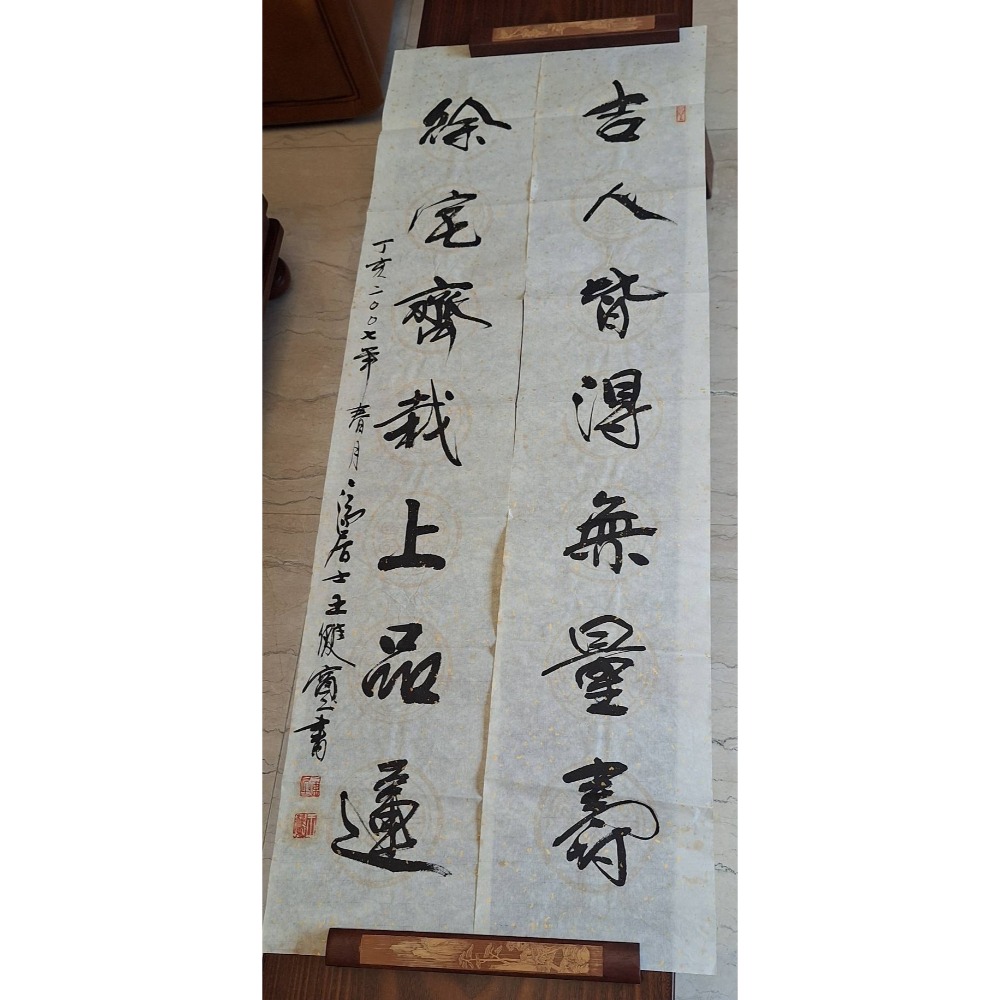 吉人皆得無量壽
徐宅齊栽上品蓮
丁亥二〇〇七年 春月 居士王書